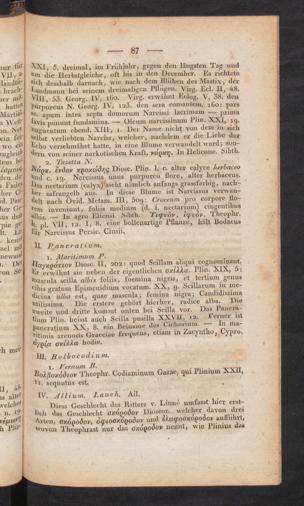 — 87 —
XXI, 5. dreimal, im Frühjahr, gegen den längsten Tag und
um die Herbstgleiche, oft bis in den December. Es richtete
sich deshalb darnach, wie nach dem Blühen des Mastix, der
Landmann bei seinem dreimaligen Pflügen. Virg. Ecl. II, 48.
VIII, 53. Georg. IV, 160. Virg. erwähnt Eclog. V, 38. den
purpureus N. Georg. IV, 123. den sera comantem, 160: pars
m. apum intra septa domorum Narcissi lacrimam — prima
favis ponunt fundamina. — Oleum narcissinum Plin. XXI, 19.
unguentum ebend. XIII, 1. Der Name nicht von dem in sich
selbst verliebten Narciss, welcher, nachdem er die Liebe der
Echo verschmäht hatte, in eine Blume verwandelt ward; son-
dern von seiner narkotischen Kraft, νάρκη. In Heliconе. Sibth.
2. Tazetta N.
Νάρκ. ἔνδον κροκώδης Diosc. Plin. l. c. alter calyce herbaceo
und c. 19. Narcissus unus purpureo flore, alter herbaceus.
Das nectarium (calyx) ist nämlich anfangs grasfarbig, nach-
her safrangelb aus. In diese Blume ist Narcissus verwan-
delt nach Ovid. Metam. III, 509: Croceum pro corpore flo-
rem inveniunt, foliis medium (d. i. nectarium) cingentibus
albis. — In agro Eliensi. Sibth.
h. pl. VII, 12. I, 8. eine bollenartige Pflanze, hält Bodaeus
für Narcissus Persic. Clusii.
II. Pancratium.
1. Maritimum P.
Παγκράτιον Diosc. II, 202: quod Scillam aliqui cognominant.
Er erwähnt sie neben der eigentlichen σκίλλα. Plin. XIX, 5:
mascula scilla albis foliis, foemina nigris, et tertium genus
cibis gratum Epimenidium vocatum. XX, 9. Scillarum in me-
dicina usus est, quae mascula; femina nigra; Candidissima
utilissima. Die erstere gehört hierher, radice alba. Die
zweite und dritte kommt unten bei Scilla vor. Das Pancra-
tium Plin. heisst auch Scilla pusilla XXVII, 12. Ferner ist
pancratium XX, 8. ein Beiname des Cichorium. — In ma-
ritimis arenosis Graeciae frequens, etiam in Zacyntho, Cypro.
ἀγρία σκίλλα hodie.
III. Bolbocodium.
1. Vernum B.
Βολβοκώδιον Theophr. Codiaminum Gazae, qui Plinium XXII,
11. sequutus est.
IV. Allium. Lauch. Ail.
Diess Geschlecht des Ritters v. Linné umfasst hier erst-
lich das Geschlecht σκόροδον Dioscor. welcher davon drei
Arten, σκόροδον, ὀφιοσκόροδον und ἐλαφοσκόροδον aufführt,
wovon Theophrast nur das σκόροδον nennt, wie Plinius das